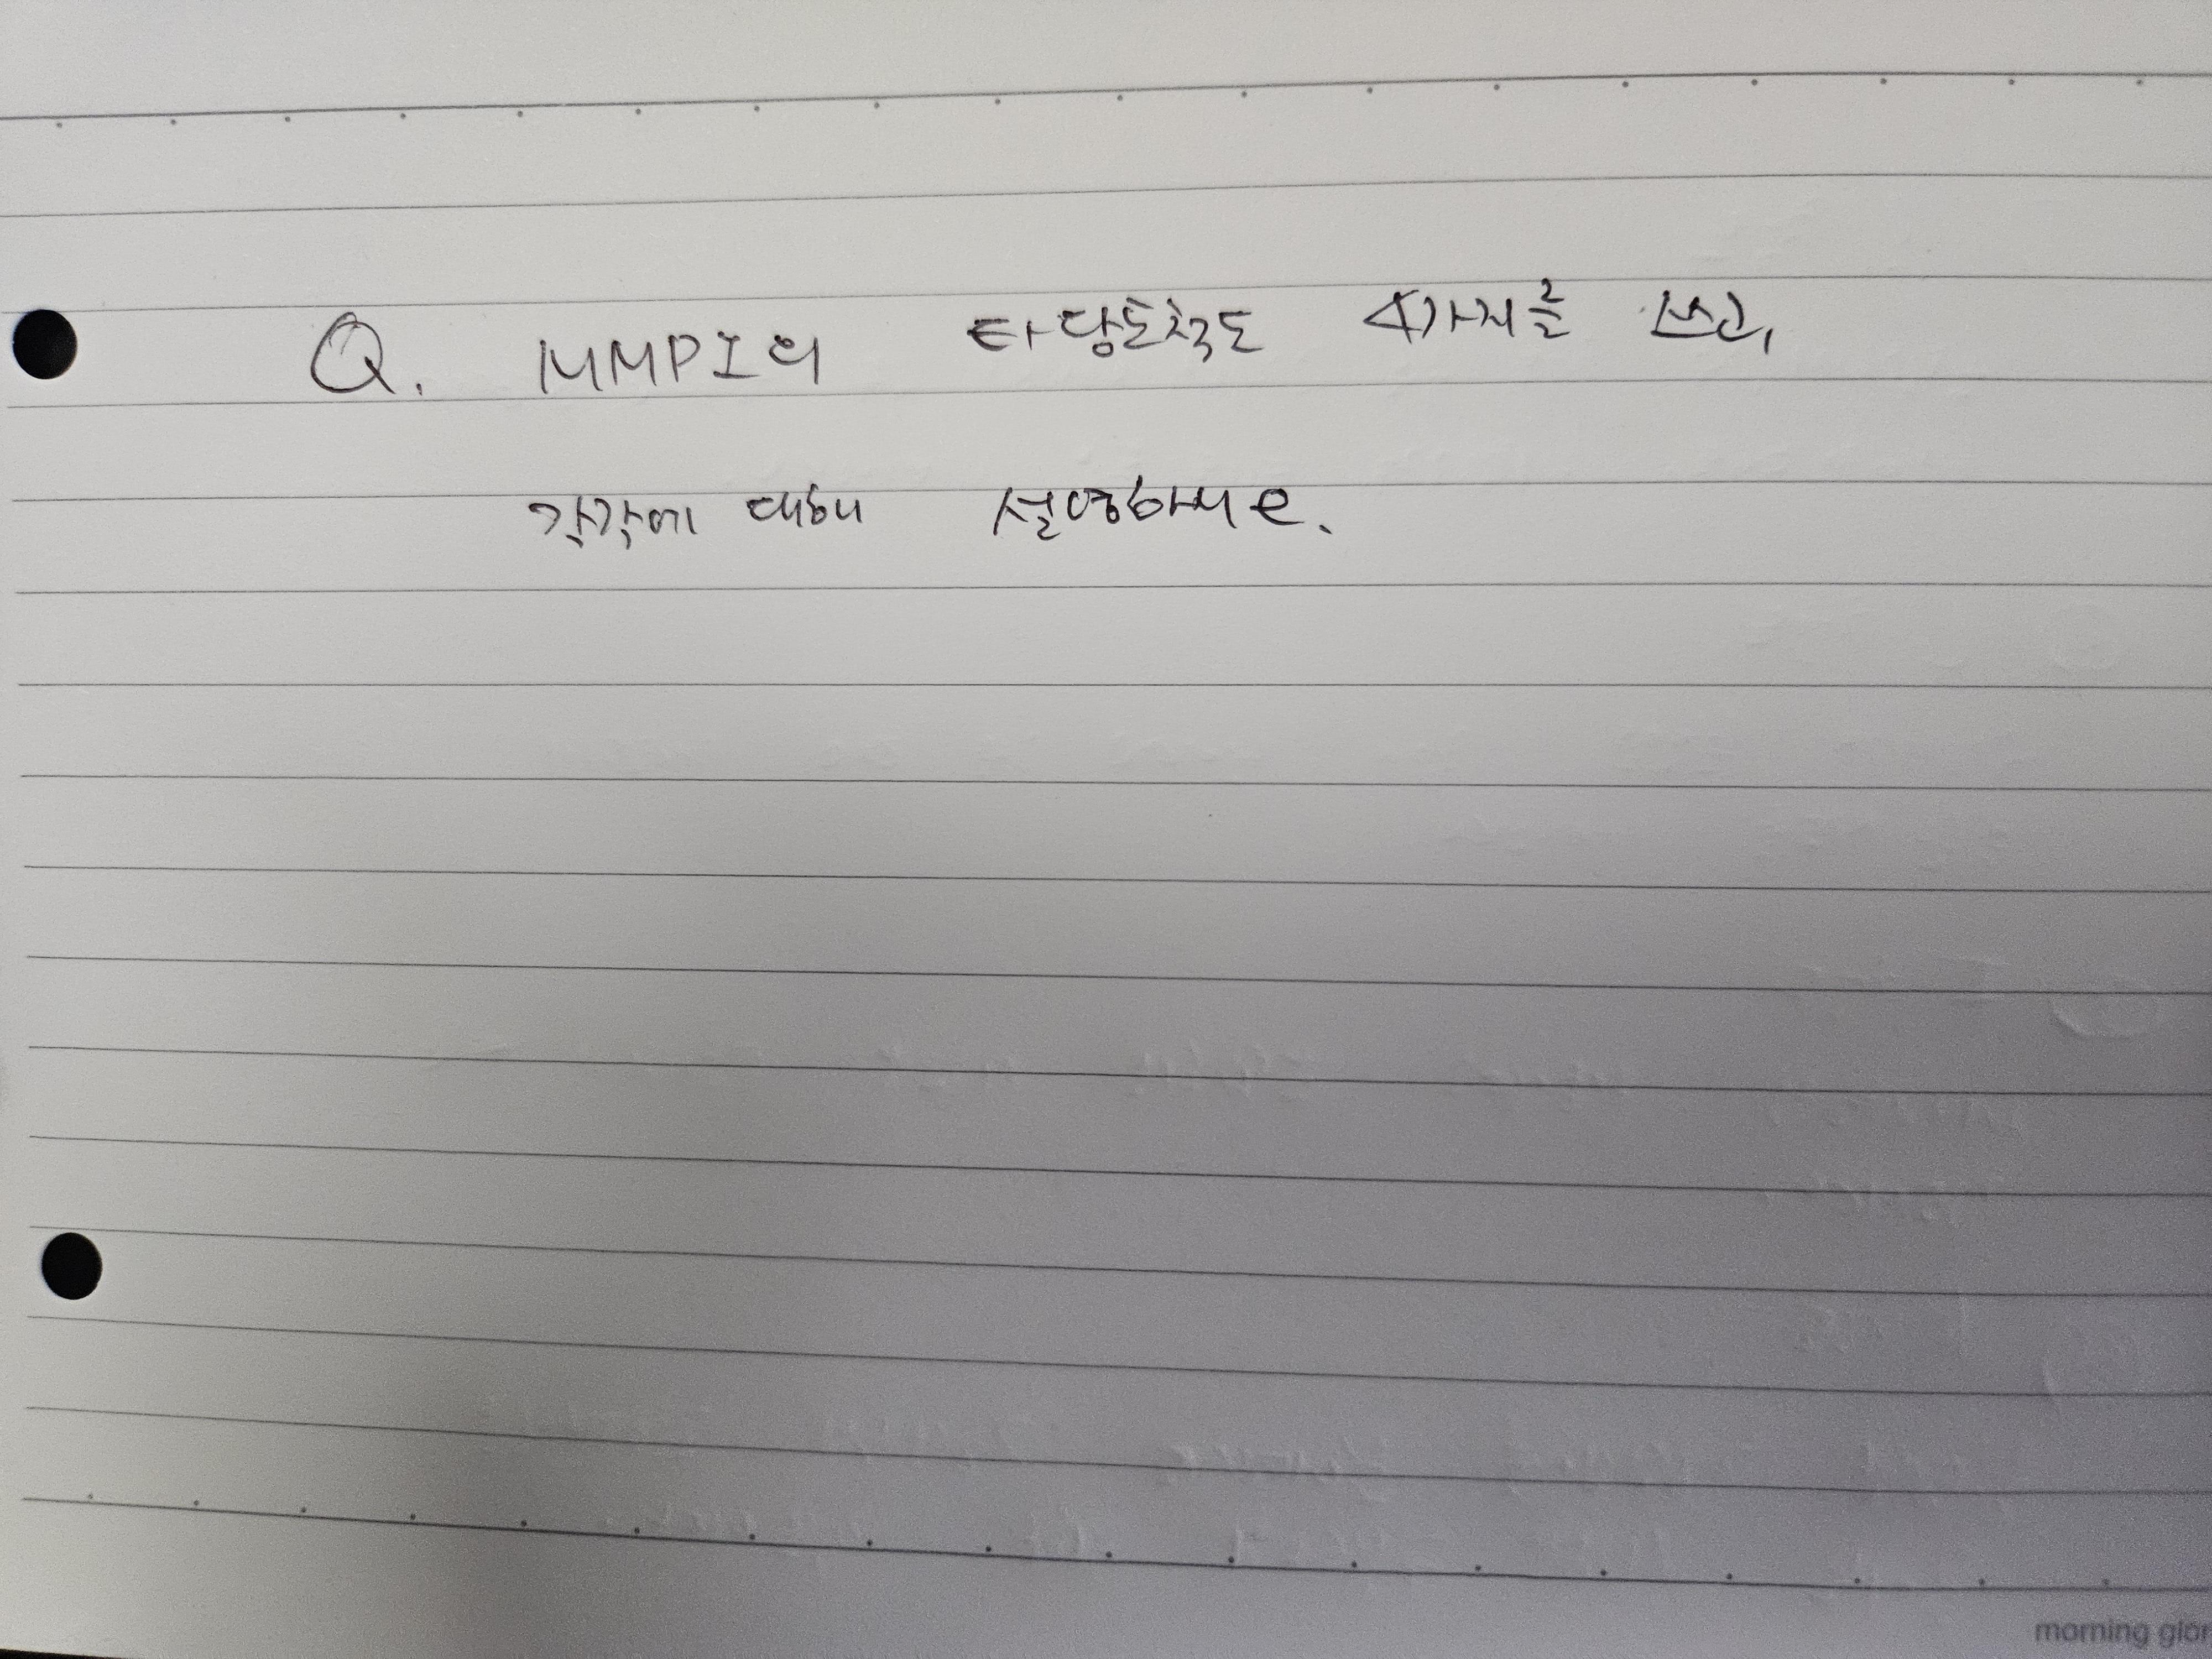 Q. MMPI의 타당도척도 4가지를 쓰고,
각각에 대해 설명하시오.
morning glor